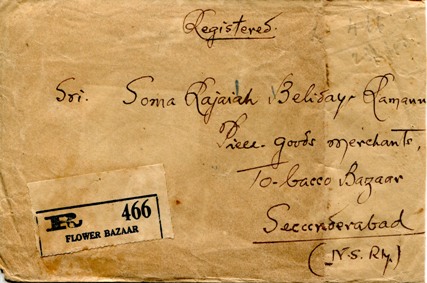 Registered.
Sri. Soma Rajaiah Beliday Ramann
Piece-goods merchants,
To-bacco Bazaar
Secunderabad
(N.S. Rly.)
R 466
FLOWER BAZAAR